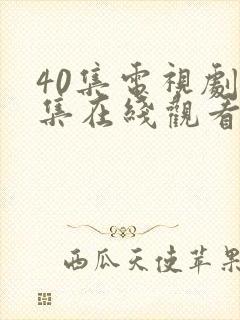 40集電視劇
集在綫觀看
西瓜天使苹果